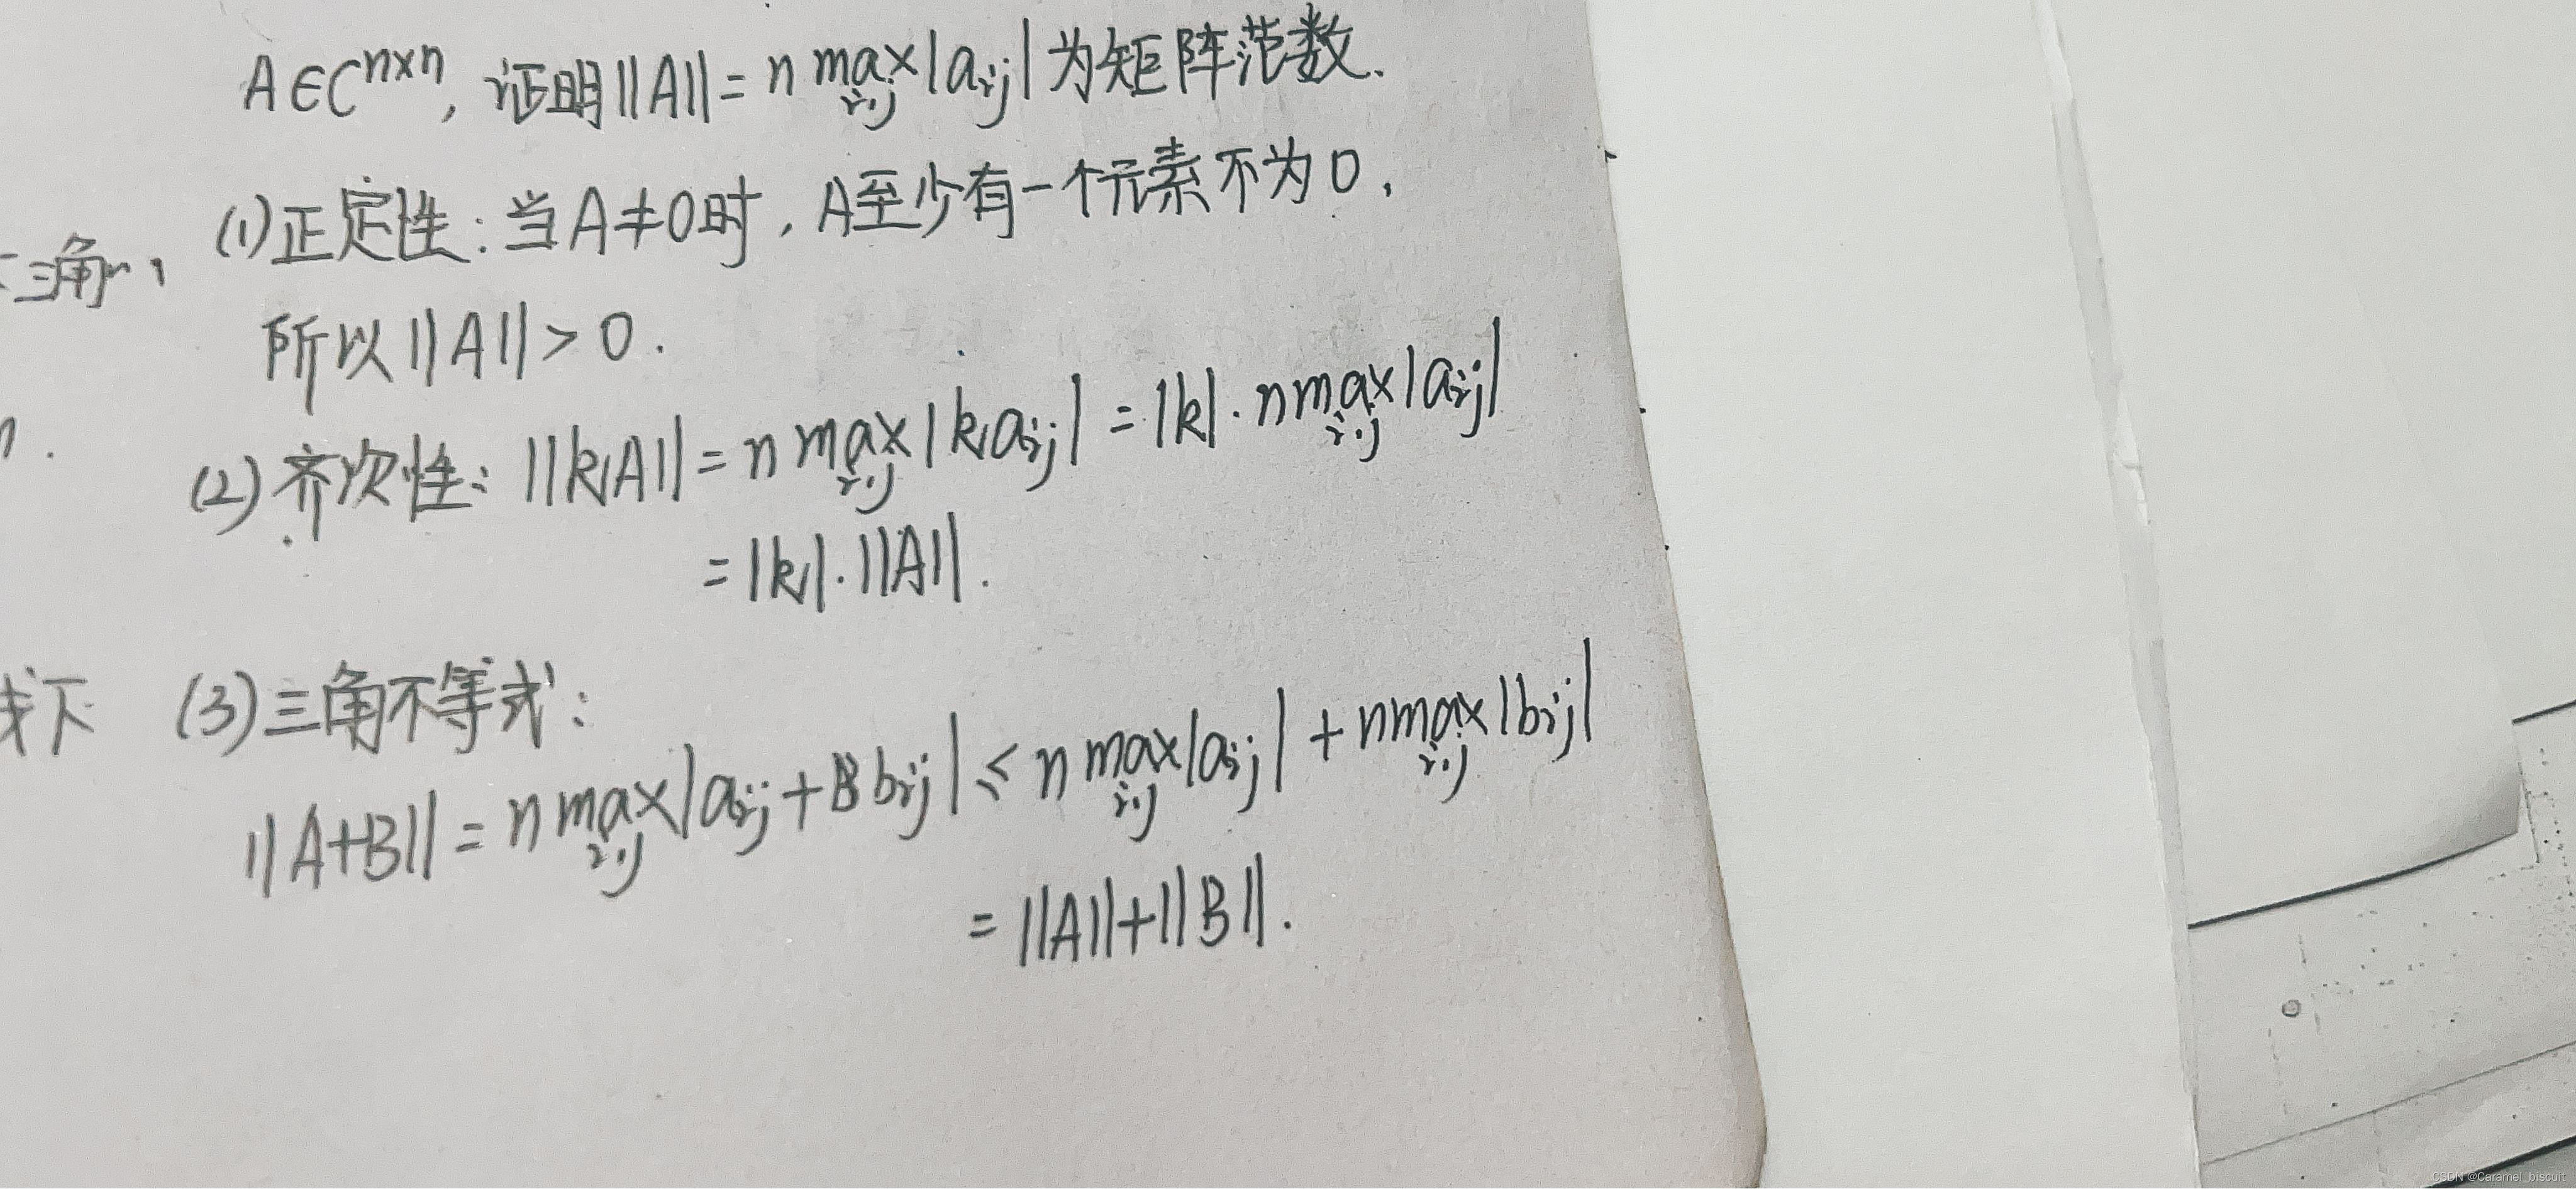 A∈C^{n×n}, 证明||A|| = n max_{i,j} |a_{ij}| 为矩阵范数.
(1) 正定性: 当A≠0时, A至少有一个元素不为0,
三角
所以||A|| > 0.
(2) 齐次性: ||kA|| = n max_{i,j} |k a_{ij}| = |k|· n max_{i,j} |a_{ij}|
= |k|·||A||.
下 (3) 三角不等式:
||A+B|| = n max_{i,j} |a_{ij} + b_{ij}| ≤ n max_{i,j} |a_{ij}| + n max_{i,j} |b_{ij}|
= ||A||+||B||.
CSDN @Caramel_biscuit